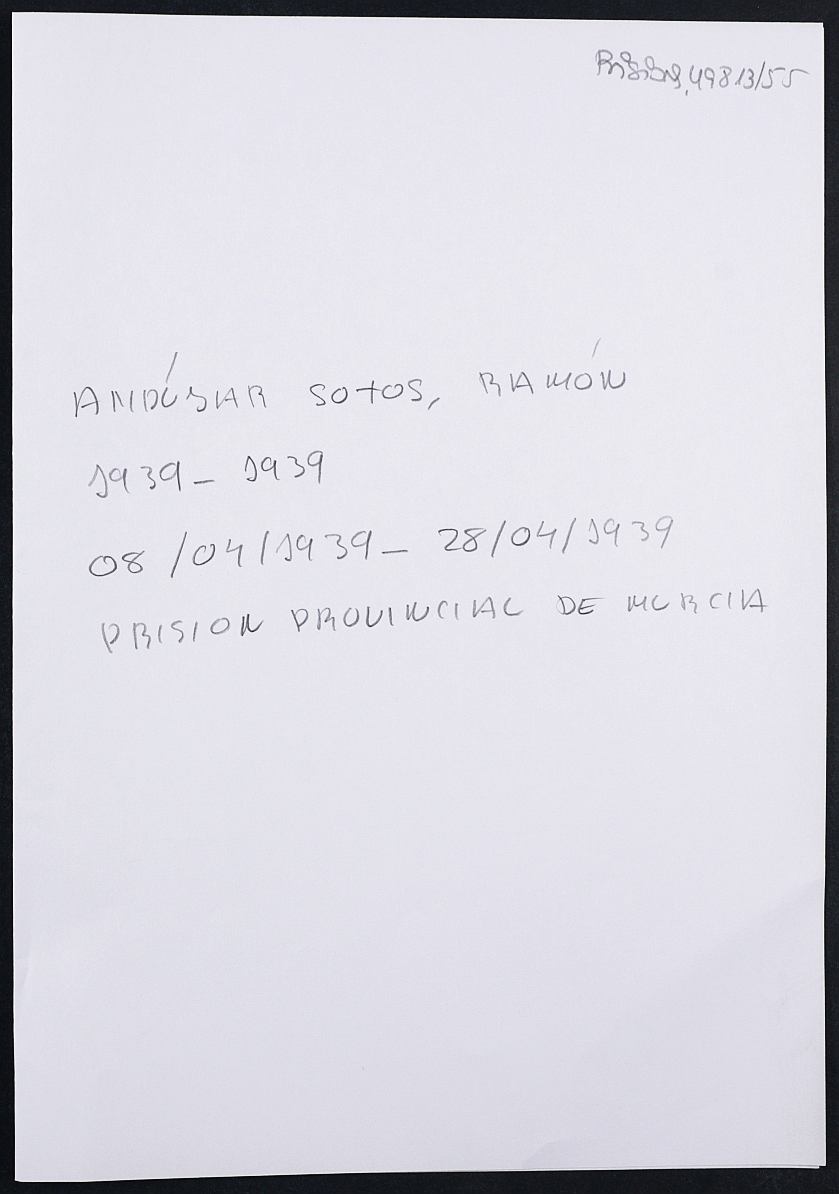 Prisiones, 49813/55
ANDÚJAR SOTOS, RAMÓN
1939_ 1939
08/04/1939_ 28/04/1939
PRISION PROVINCIAL DE MURCIA